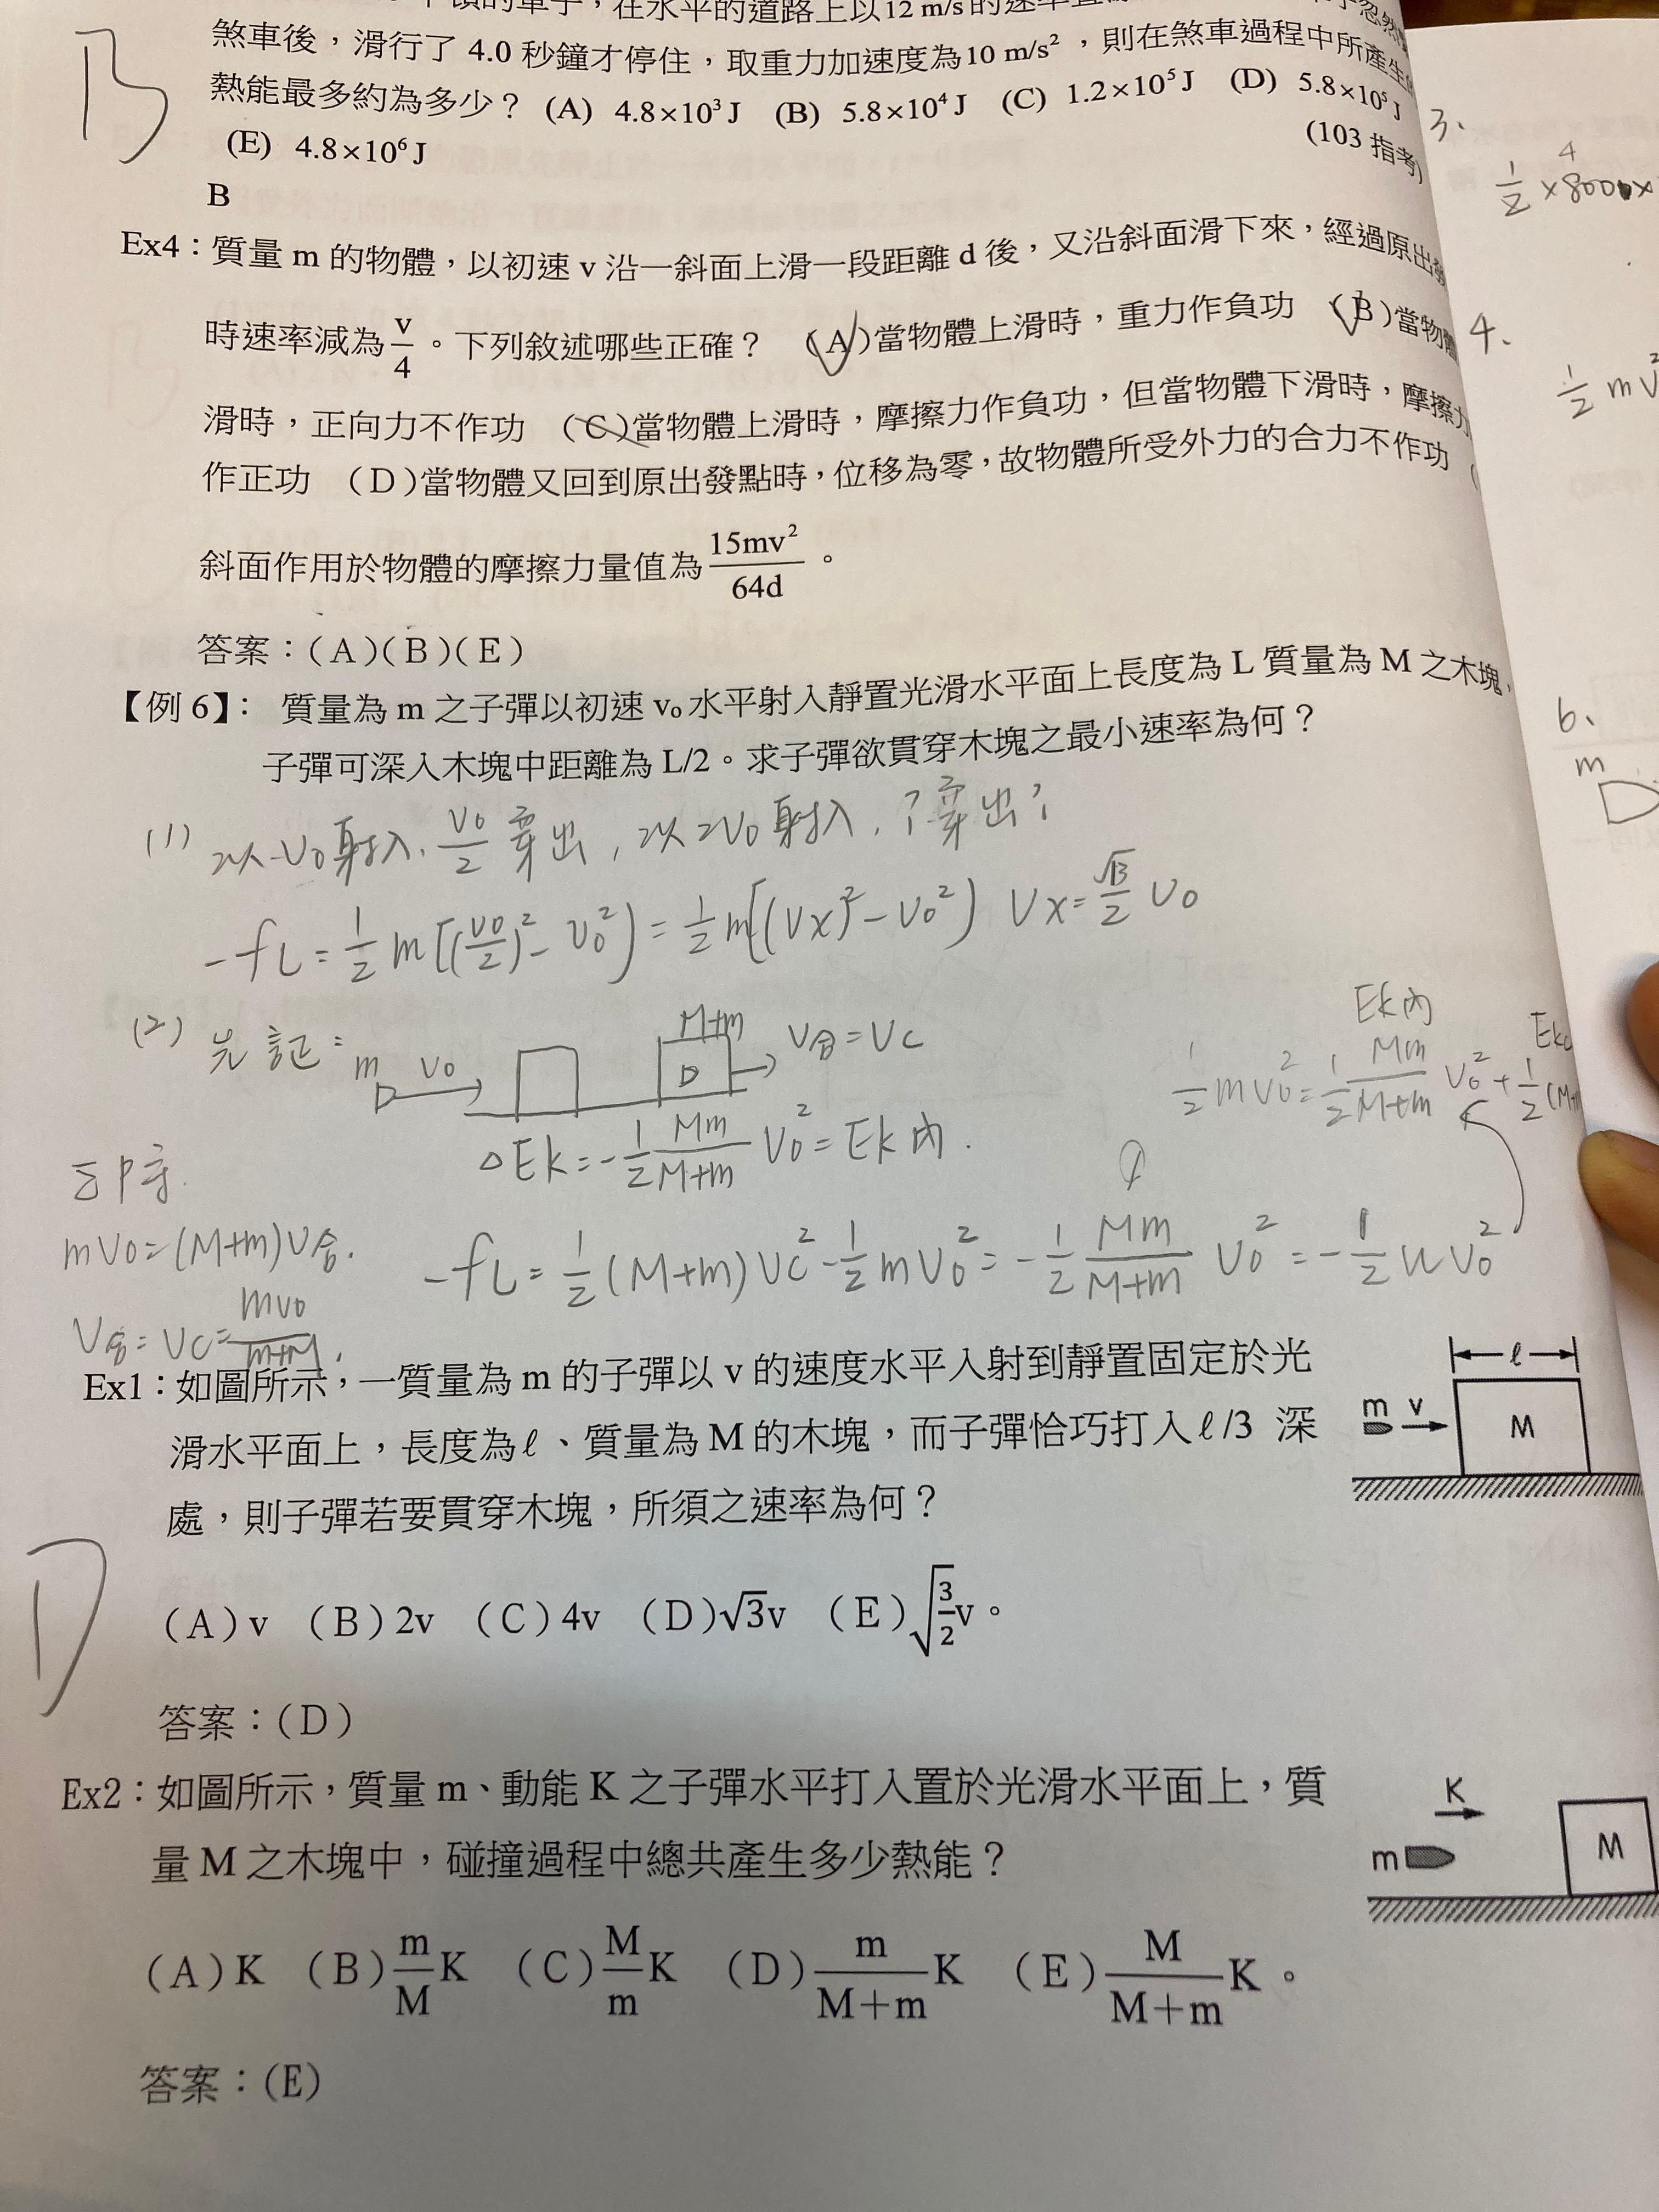 頓的車子，在水平的道路上以12 m/s的速率直
煞車後，滑行了 4.0 秒鐘才停住，取重力加速度為10 m/s²，則在煞車過程中所產生
熱能最多約為多少？ (A) 4.8×10³ J (B) 5.8×10⁴ J (C) 1.2×10⁵ J (D) 5.8×10⁵ J
(E) 4.8×10⁶ J (103 指考)
B
B
3.
1/2 × 8000 ×
4
Ex4：質量 m 的物體，以初速 v 沿一斜面上滑一段距離 d 後，又沿斜面滑下來，經過原出發
時速率減為 v/4 。下列敘述哪些正確？ (A)當物體上滑時，重力作負功 (B)當物體
滑時，正向力不作功 (C)當物體上滑時，摩擦力作負功，但當物體下滑時，摩擦力
作正功 (D)當物體又回到原出發點時，位移為零，故物體所受外力的合力不作功 (
斜面作用於物體的摩擦力量值為 15mv²/64d 。
答案：(A)(B)(E)
4.
1/2 m v²
【例 6】： 質量為 m 之子彈以初速 v₀ 水平射入靜置光滑水平面上長度為 L 質量為 M 之木塊，
子彈可深入木塊中距離為 L/2。求子彈欲貫穿木塊之最小速率為何？
6.
m
(1) 以 v₀ 射入, v₀/2 穿出, 以 2v₀ 射入, ?穿出?
-fL = 1/2 m[(v₀/2)² - v₀²] = 1/2 m[(Vx)² - v₀²) Vx = √13/2 v₀
(2) 先証：
m v₀
M+m
V合 = Vc
ΔEk = -1/2 Mm/M+m v₀² = Ek內.
Ek內
1/2 m v₀² = 1/2 Mm/M+m v₀² + 1/2 (M+
Σp守.
mv₀ = (M+m)V合.
V合 = Vc = mv₀/m+M.
-fL = 1/2 (M+m) Vc² - 1/2 m v₀² = -1/2 Mm/M+m v₀² = -1/2 u v₀²
Ex1：如圖所示，一質量為 m 的子彈以 v 的速度水平入射到靜置固定於光
滑水平面上，長度為ℓ、質量為 M 的木塊，而子彈恰巧打入ℓ/3 深
處，則子彈若要貫穿木塊，所須之速率為何？
ℓ
m v
M
(A) v (B) 2v (C) 4v (D) √3v (E) √(3/2)v。
D
答案：(D)
Ex2：如圖所示，質量 m、動能 K 之子彈水平打入置於光滑水平面上，質
量 M 之木塊中，碰撞過程中總共產生多少熱能？
K
m
M
(A) K (B) m/M K (C) M/m K (D) m/M+m K (E) M/M+m K。
答案：(E)